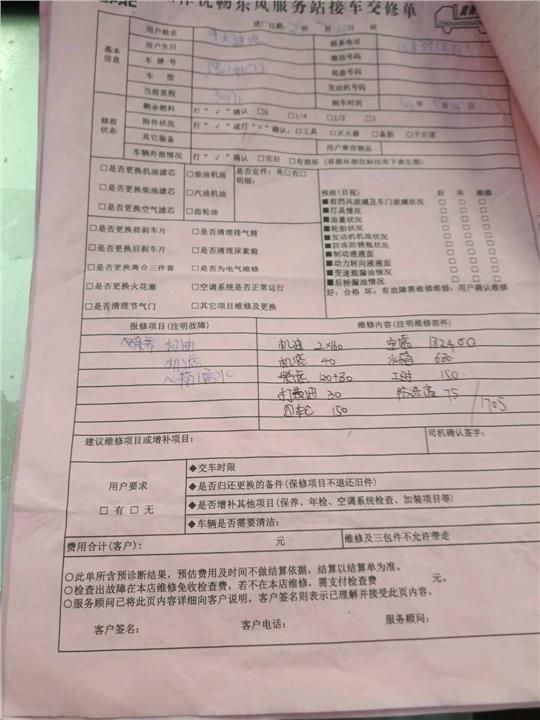 优畅东风服务站接车交修单
进厂日期: 年 月 日 时
基本信息
用户姓名 联系电话
用户生日 微信号码
车牌号 底盘号码
车型 发动机号码
当前里程 购车时间 24年5月 日
修前状态
剩余燃料 打“√”确认 □0 □1/4 □1/2 □1
附件状况 打“√”或打“×”确认:□工具 □灭火器 □备胎 □千斤顶
其它装备 用户寄存物品
车辆外部情况 打“√”确认 □完好 □有损坏(有损坏部位标注有下表左图)
□是否更换机油滤芯 □柴油机油 是否定件:是□否□
明细:
□是否更换柴油滤芯 □汽油机油
□是否更换空气滤芯 □齿轮油
□是否更换前刹车片 □是否清理排气筒
□是否更换后刹车片 □是否清理尿素箱
□是否更换离合三件套 □是否为电气维修
□是否更换火花塞 □空调系统是否正常运行
□是否清理节气门 □其它项目维修及更换
预检(目视) 好 坏 需修
■前挡风玻璃及车门玻璃状况 □ □ □
■灯具情况 □ □ □
■油量状况 □ □ □
■轮胎状况 □ □ □
■发动机机油状况 □ □ □
■防冻防锈瓶状况 □ □ □
■制动液液面 □ □ □
■动力转向液液面 □ □ □
■变速箱漏油情况 □ □ □
■后桥漏油情况 □ □ □
好:合格 坏:有故障需维修维修:用户确认维修
报修项目(注明故障) 维修内容(注明维修部件)
保养 机油 机油 2×160 空滤
机滤 机滤 40 水箱 630
水箱漏水 柴滤 120+30 工时 150
打黄油 30 防冻液 75
150 1705
建议维修项目或增补项目: 司机确认签字:
用户要求
□ 有 □ 无
◆交车时限
◆是否归还更换的备件(保修项目不退还旧件)
◆是否增补其他项目(保养、年检、空调系统检查、加装项目等)
◆车辆是否需要清洁:
费用合计(客户): 元 维修及三包件不允许带走
○此单所含预诊断结果,预估费用及时间不做结算依据,结算以结算单为准。
○检查出故障在本店维修免收检查费,若不在本店维修,需支付检查费 元。
○服务顾问已将此页内容详细向客户说明,客户签名则表示已理解并接受此页内容。
客户签名: 客户电话: 服务顾问: